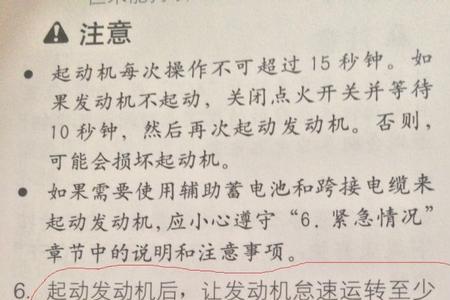 注意
起动机每次操作不可超过 15 秒钟。如
果发动机不起动，关闭点火开关并等待
10 秒钟，然后再次起动发动机。否则，
可能会损坏起动机。
如果需要使用辅助蓄电池和跨接电缆来
起动发动机，应小心遵守“6. 紧急情况”
章节中的说明和注意事项。
6. 起动发动机后，让发动机怠速运转至少